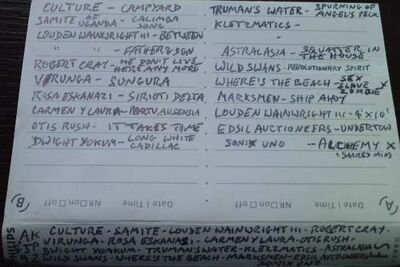 CULTURE - CAMPYARD
SAMITE OF UGANDA - CALIMBA SONG
LOUDEN WAINWRIGHT III - BETWEEN
" " - FATHER & SON
ROBERT CRAY - HE DON'T LIVE HERE ANY MORE
VIRUNGA - SUNGURA
ROSA ESKANAZI - SIRIETI DELTA
CARMEN Y LAURA - PORTU AUSENSIA
OTIS RUSH - IT TAKES TIME
DWIGHT YOKUM - LONG WHITE CADILLAC
TRUMAN'S WATER - SPURNING OF ANGEL'S PECK
KLETZMATICS -
ASTRALASIA - SQUATTER IN THE HOUSE
WILD SWANS - REVOLUTIONARY SPIRIT
WHERE'S THE BEACH - SEX SLAVE ZOMBIE X
MARKSMEN - SHIP AHOY
LOUDEN WAINWRIGHT III - 4' X 10'
EDSIL AUCTIONKERS - UNDERTOW
SONIX UNO - ALCHEMY X (SACRED MIX)
B Date | Time NR □ On □ Off
A Date | Time NR □ On □ Off
CULTURE - SAMITE - LOUDEN WAINWRIGHT III - ROBERT CRAY -
VIRUNGA - ROSA ESKENAZI - CARMEN Y LAURA - OTIS RUSH -
DWIGHT YOAKUM - TRUMANS WATER - KLEZZMATICS - ASTRALASIA
WILD SWANS - WHERE'S THE BEACH - MARKSMEN - EDSIL AUCTIONEER
SONIX UNO